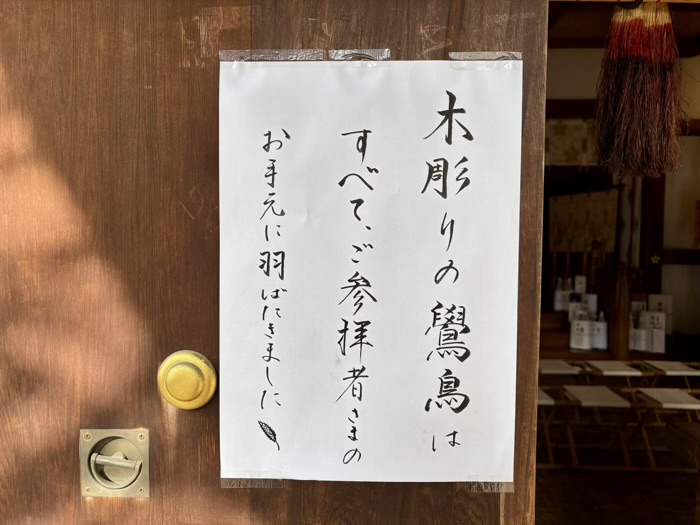 木彫りの鷽鳥は
すべて、ご参拝者さまの
お手元に羽ばたきました